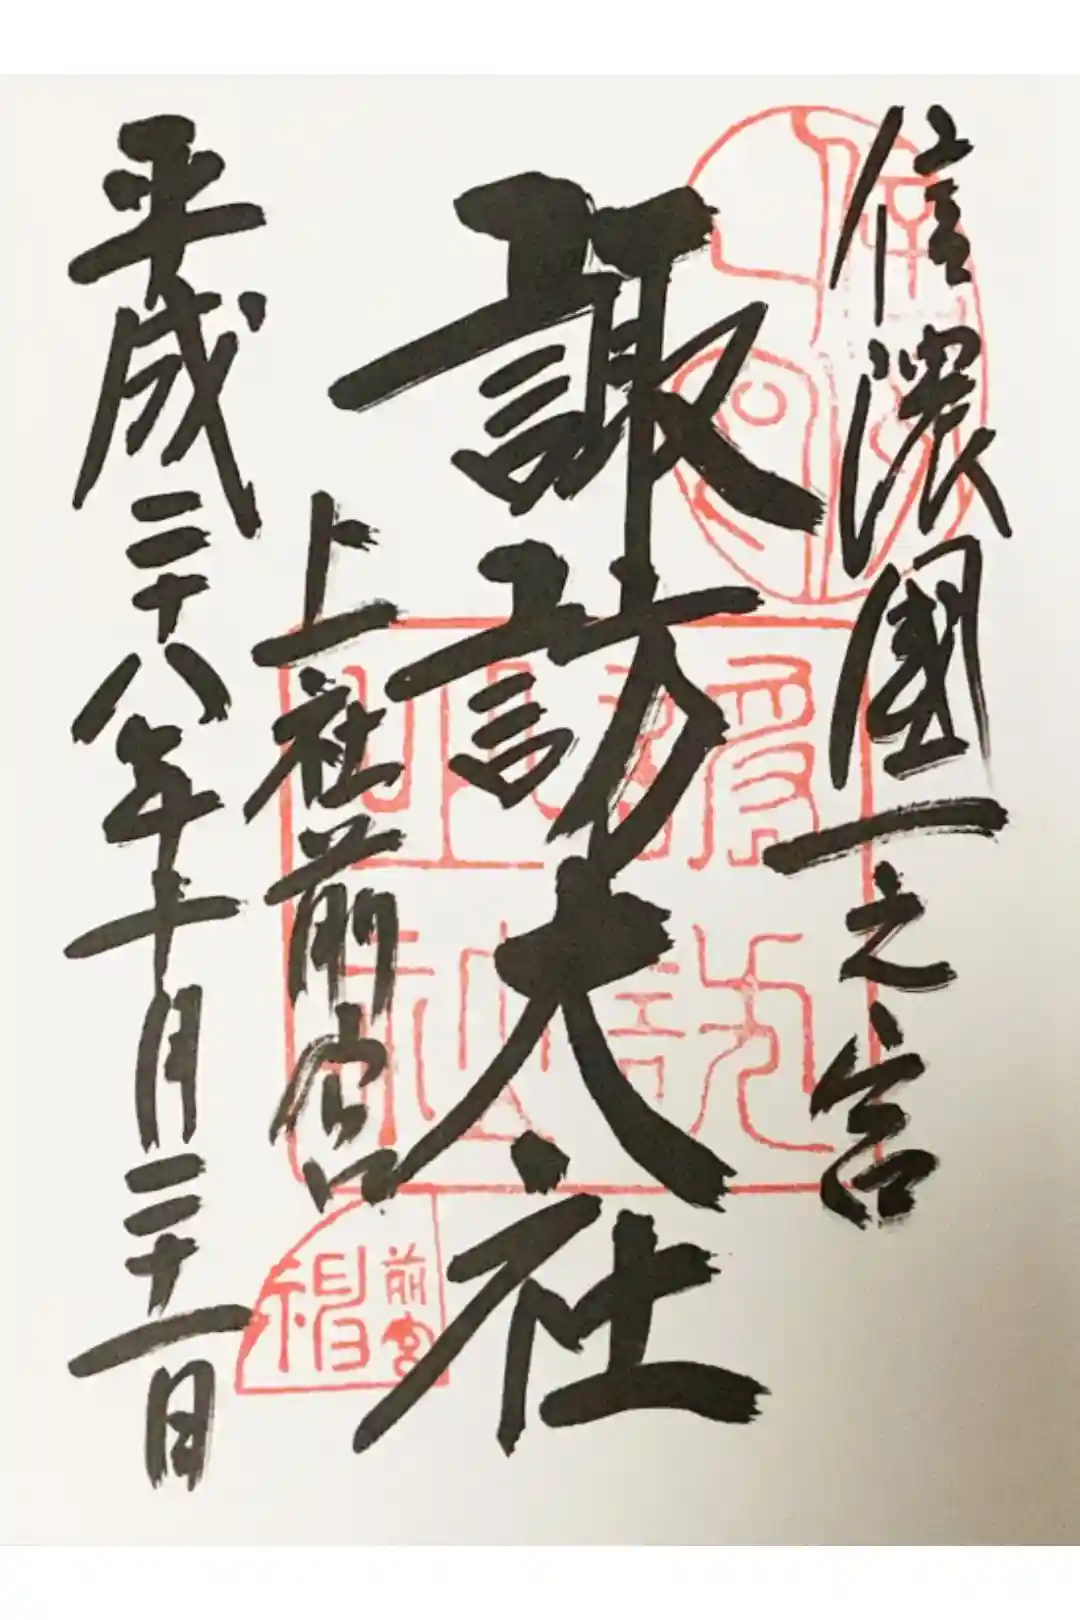 信濃國一之宮
諏訪大社
上社前宮
平成二十八年十月二十一日
前宮